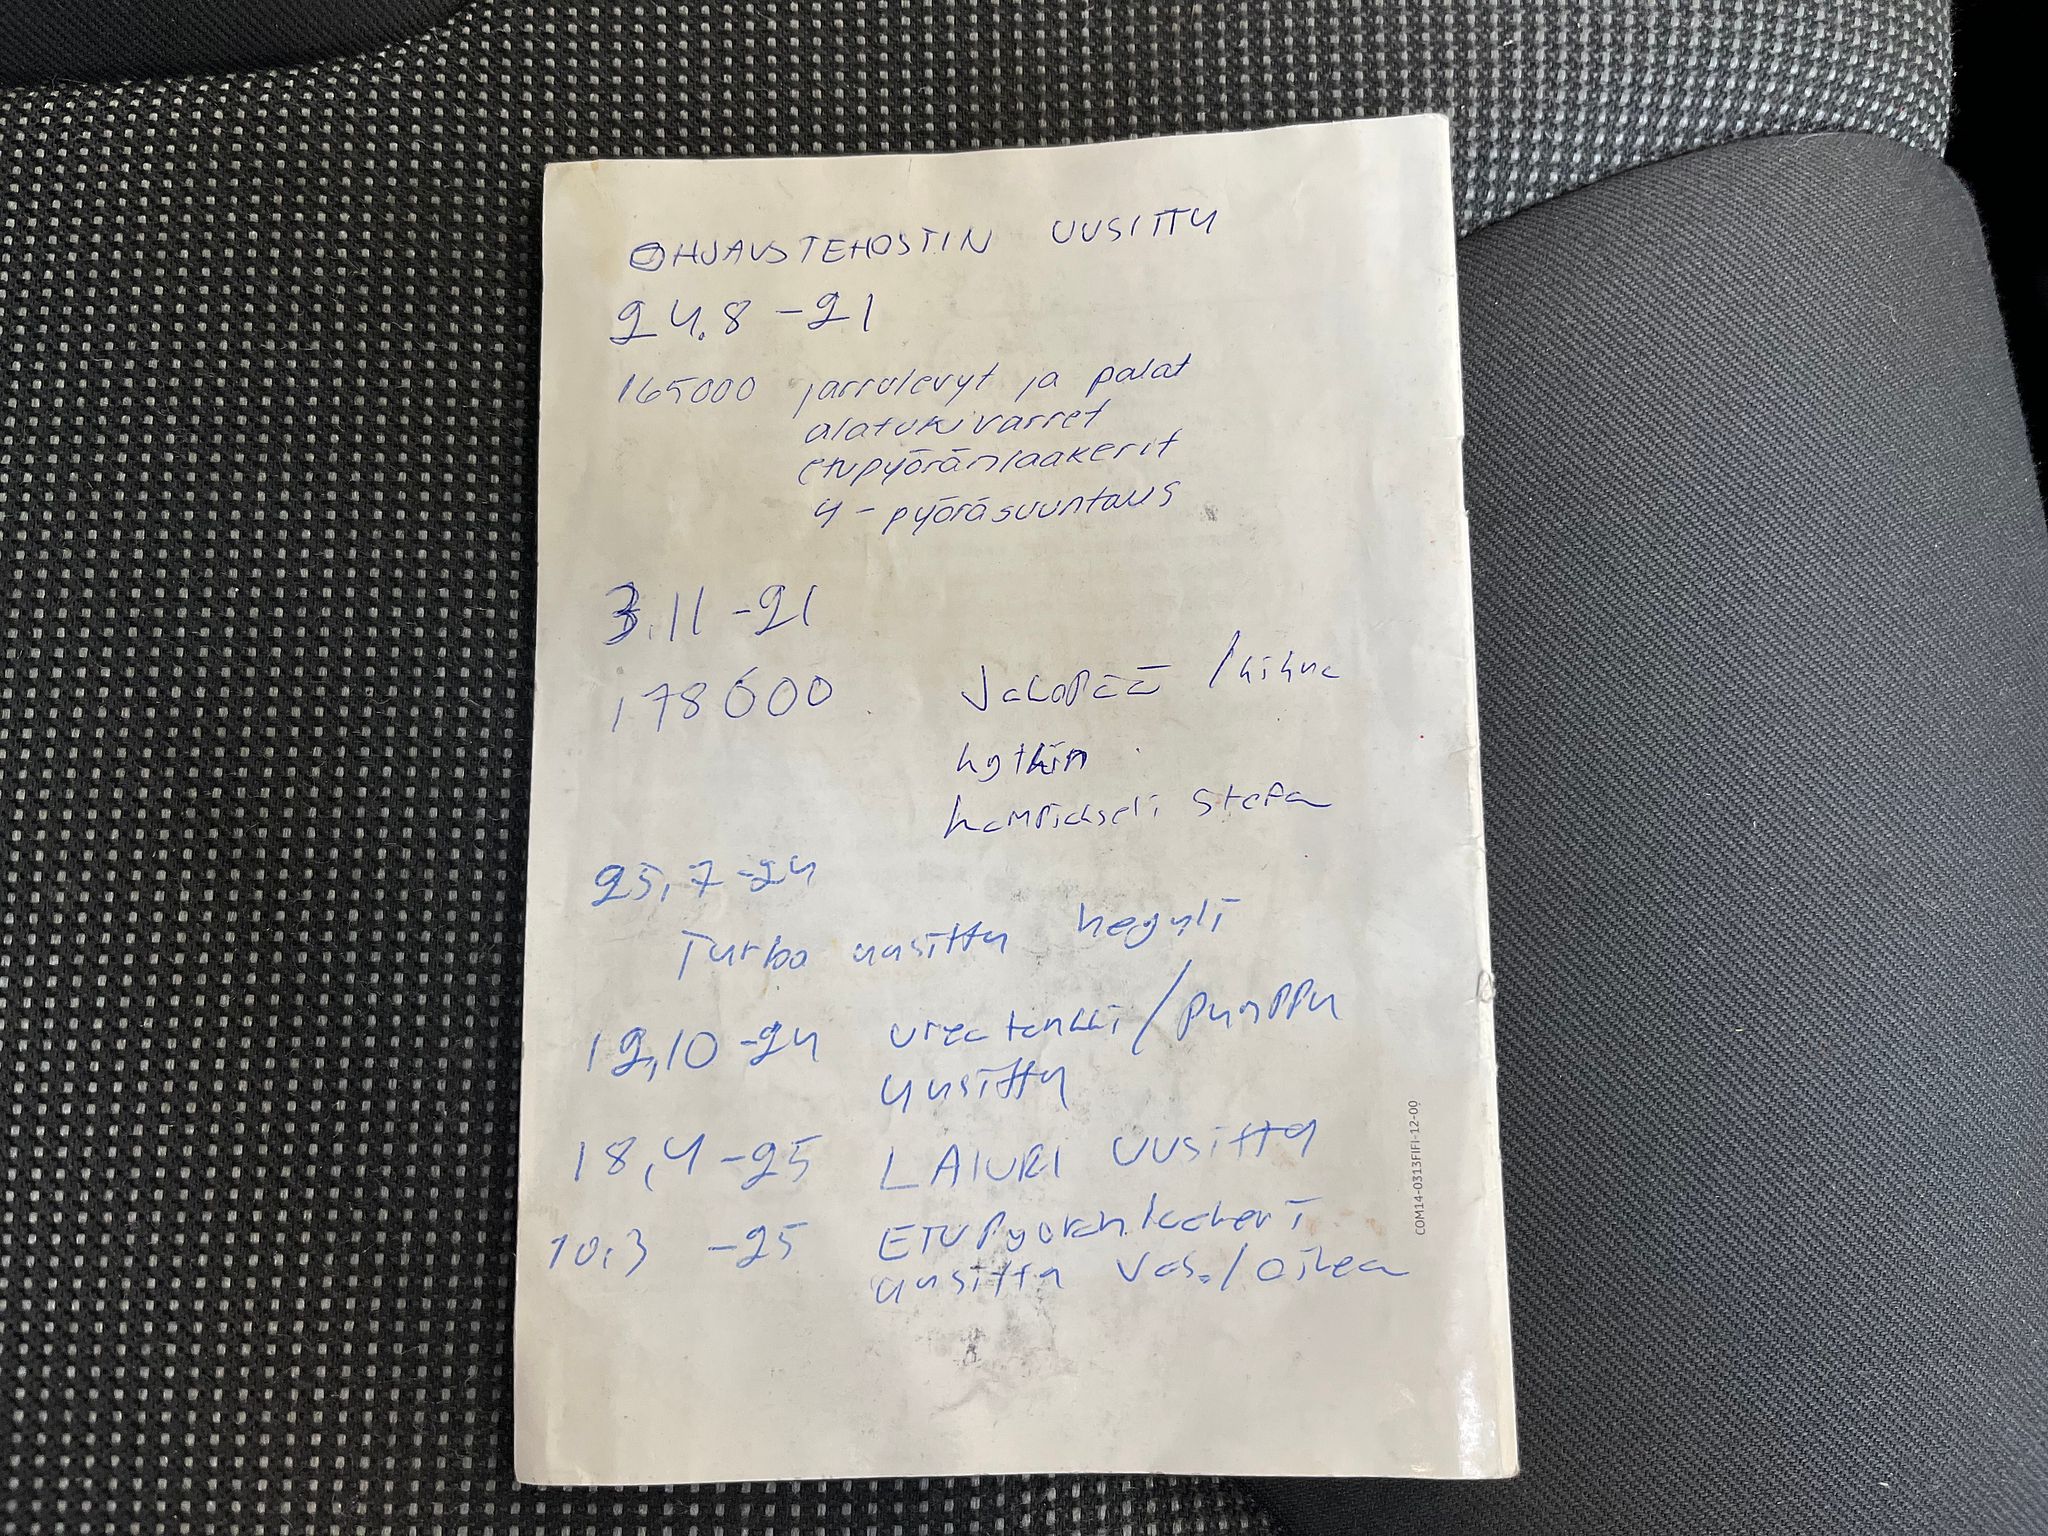 OHJAUSTEHOSTIN UUSITTU
24.8 -21
165000 jarrulevyt ja palat
alatukivarret
etupyöränlaakerit
4-pyöräsuuntaus
3.11 -21
178000 Jakopää / hihna
kytkin
kampiakseli stefa
25.7 -24
Turbo uusittu
12.10 -24 Urea tankki / pumppu
uusittu
18.4 -25 LATURI UUSITTU
10.3 -25 ETUPyöränlaakeri
uusittu vas. / oikea
COM14-0313FIFI-12-00